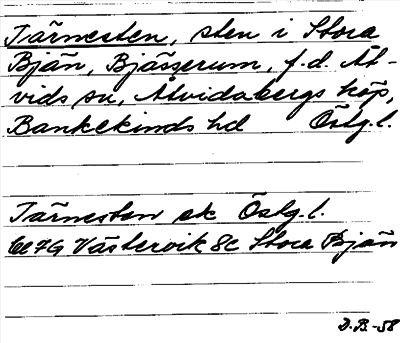 Tärnesten, sten i Stora
Bjän, Bjässerum, f.d. Åt-
vids sn, Åtvidabergs köp,
Bankekinds hd Östg.l.
Tärnesten ek Östg.l.
7G Västervik 8c Stora Bjän
D.B.-58